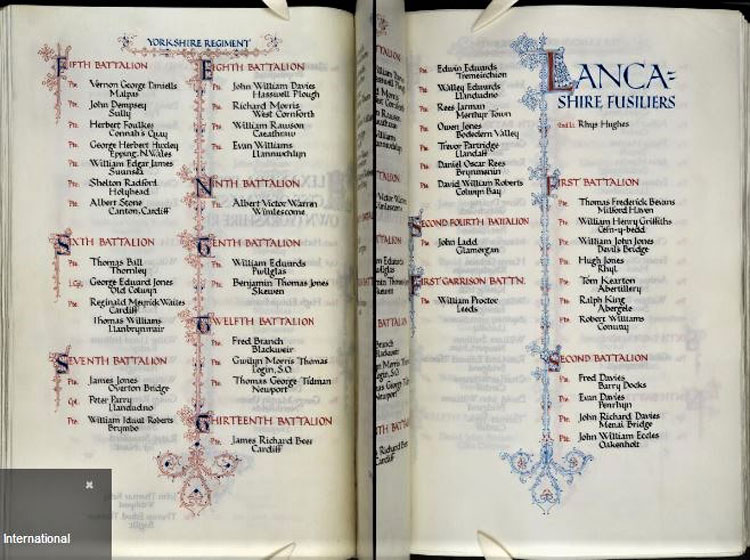 YORKSHIRE REGIMENT
FIFTH BATTALION
Pte. Vernon George Daniells
Malpas
Pte. John Dempsey
Sully
Pte. Herbert Foulkes
Connah's Quay
Pte. George Herbert Huxley
Epping. N. Wales
Pte. William Edgar James
Swansea
Pte. Shelton Radford
Holyhead
Pte. Albert Stone
Canton, Cardiff
SIXTH BATTALION
Pte. Thomas Ball
Thornley
LCpl. George Eduard Jones
Old Colwyn
Pte. Reginald Meyrick Waites
Cardiff
Thomas Williams
Llanbrynmair
SEVENTH BATTALION
Pte. James Jones
Overton Bridge
Cpl. Peter Parry
Llandudno
Pte. William Idwal Roberts
Brymbo
EIGHTH BATTALION
Pte. John William Davies
Hasswell Plough
Pte. Richard Morris
West Cornforth
Pte. William Rawson
Caeathraw
Pte. Evan Williams
Llanuwchlyn
NINTH BATTALION
Pte. Albert Victor Warren
Wimlescome
TENTH BATTALION
Pte. William Edwards
Pwllglas
Pte. Benjamin Thomas Jones
Skewen
TWELFTH BATTALION
Pte. Fred Branch
Blackweir
Pte. Gwilym Morris Thomas
Login, S.O.
Pte. Thomas George Tidman
Newport
THIRTEENTH BATTALION
Pte. James Richard Beer
Cardiff
International
Pte. Edwin Edwards
Tremeirchion
Pte. Walley Edwards
Llandudno
Pte. Rees Jarman
Merthyr Town
Pte. Owen Jones
Bodedern Valley
Pte. Trevor Partridge
Llandaff
Pte. Daniel Oscar Rees
Brynmenin
Pte. David William Roberts
Colwyn Bay
SECOND FOURTH BATTALION
Pte. John Ladd
Glamorgan
FIRST GARRISON BATTN.
Pte. William Proctor
Leeds
LANCA=
SHIRE FUSILIERS
Rhys Hughes
FIRST BATTALION
Pte. Thomas Frederick Bevans
Milford Haven
Pte. William Henry Griffiths
Cefn-y-bedd
Pte. William John Jones
Davil's Bridge
Pte. Hugh Jones
Rhyl
Pte. Tom Kearton
Abertillery
Pte. Ralph King
Abergele
Pte. Robert Williams
Conway
SECOND BATTALION
Pte. Fred Davies
Barry Docks
Pte. Evan Davies
Penrhyn
Pte. John Richard Davies
Menai Bridge
Pte. John William Eccles
Oakenholt